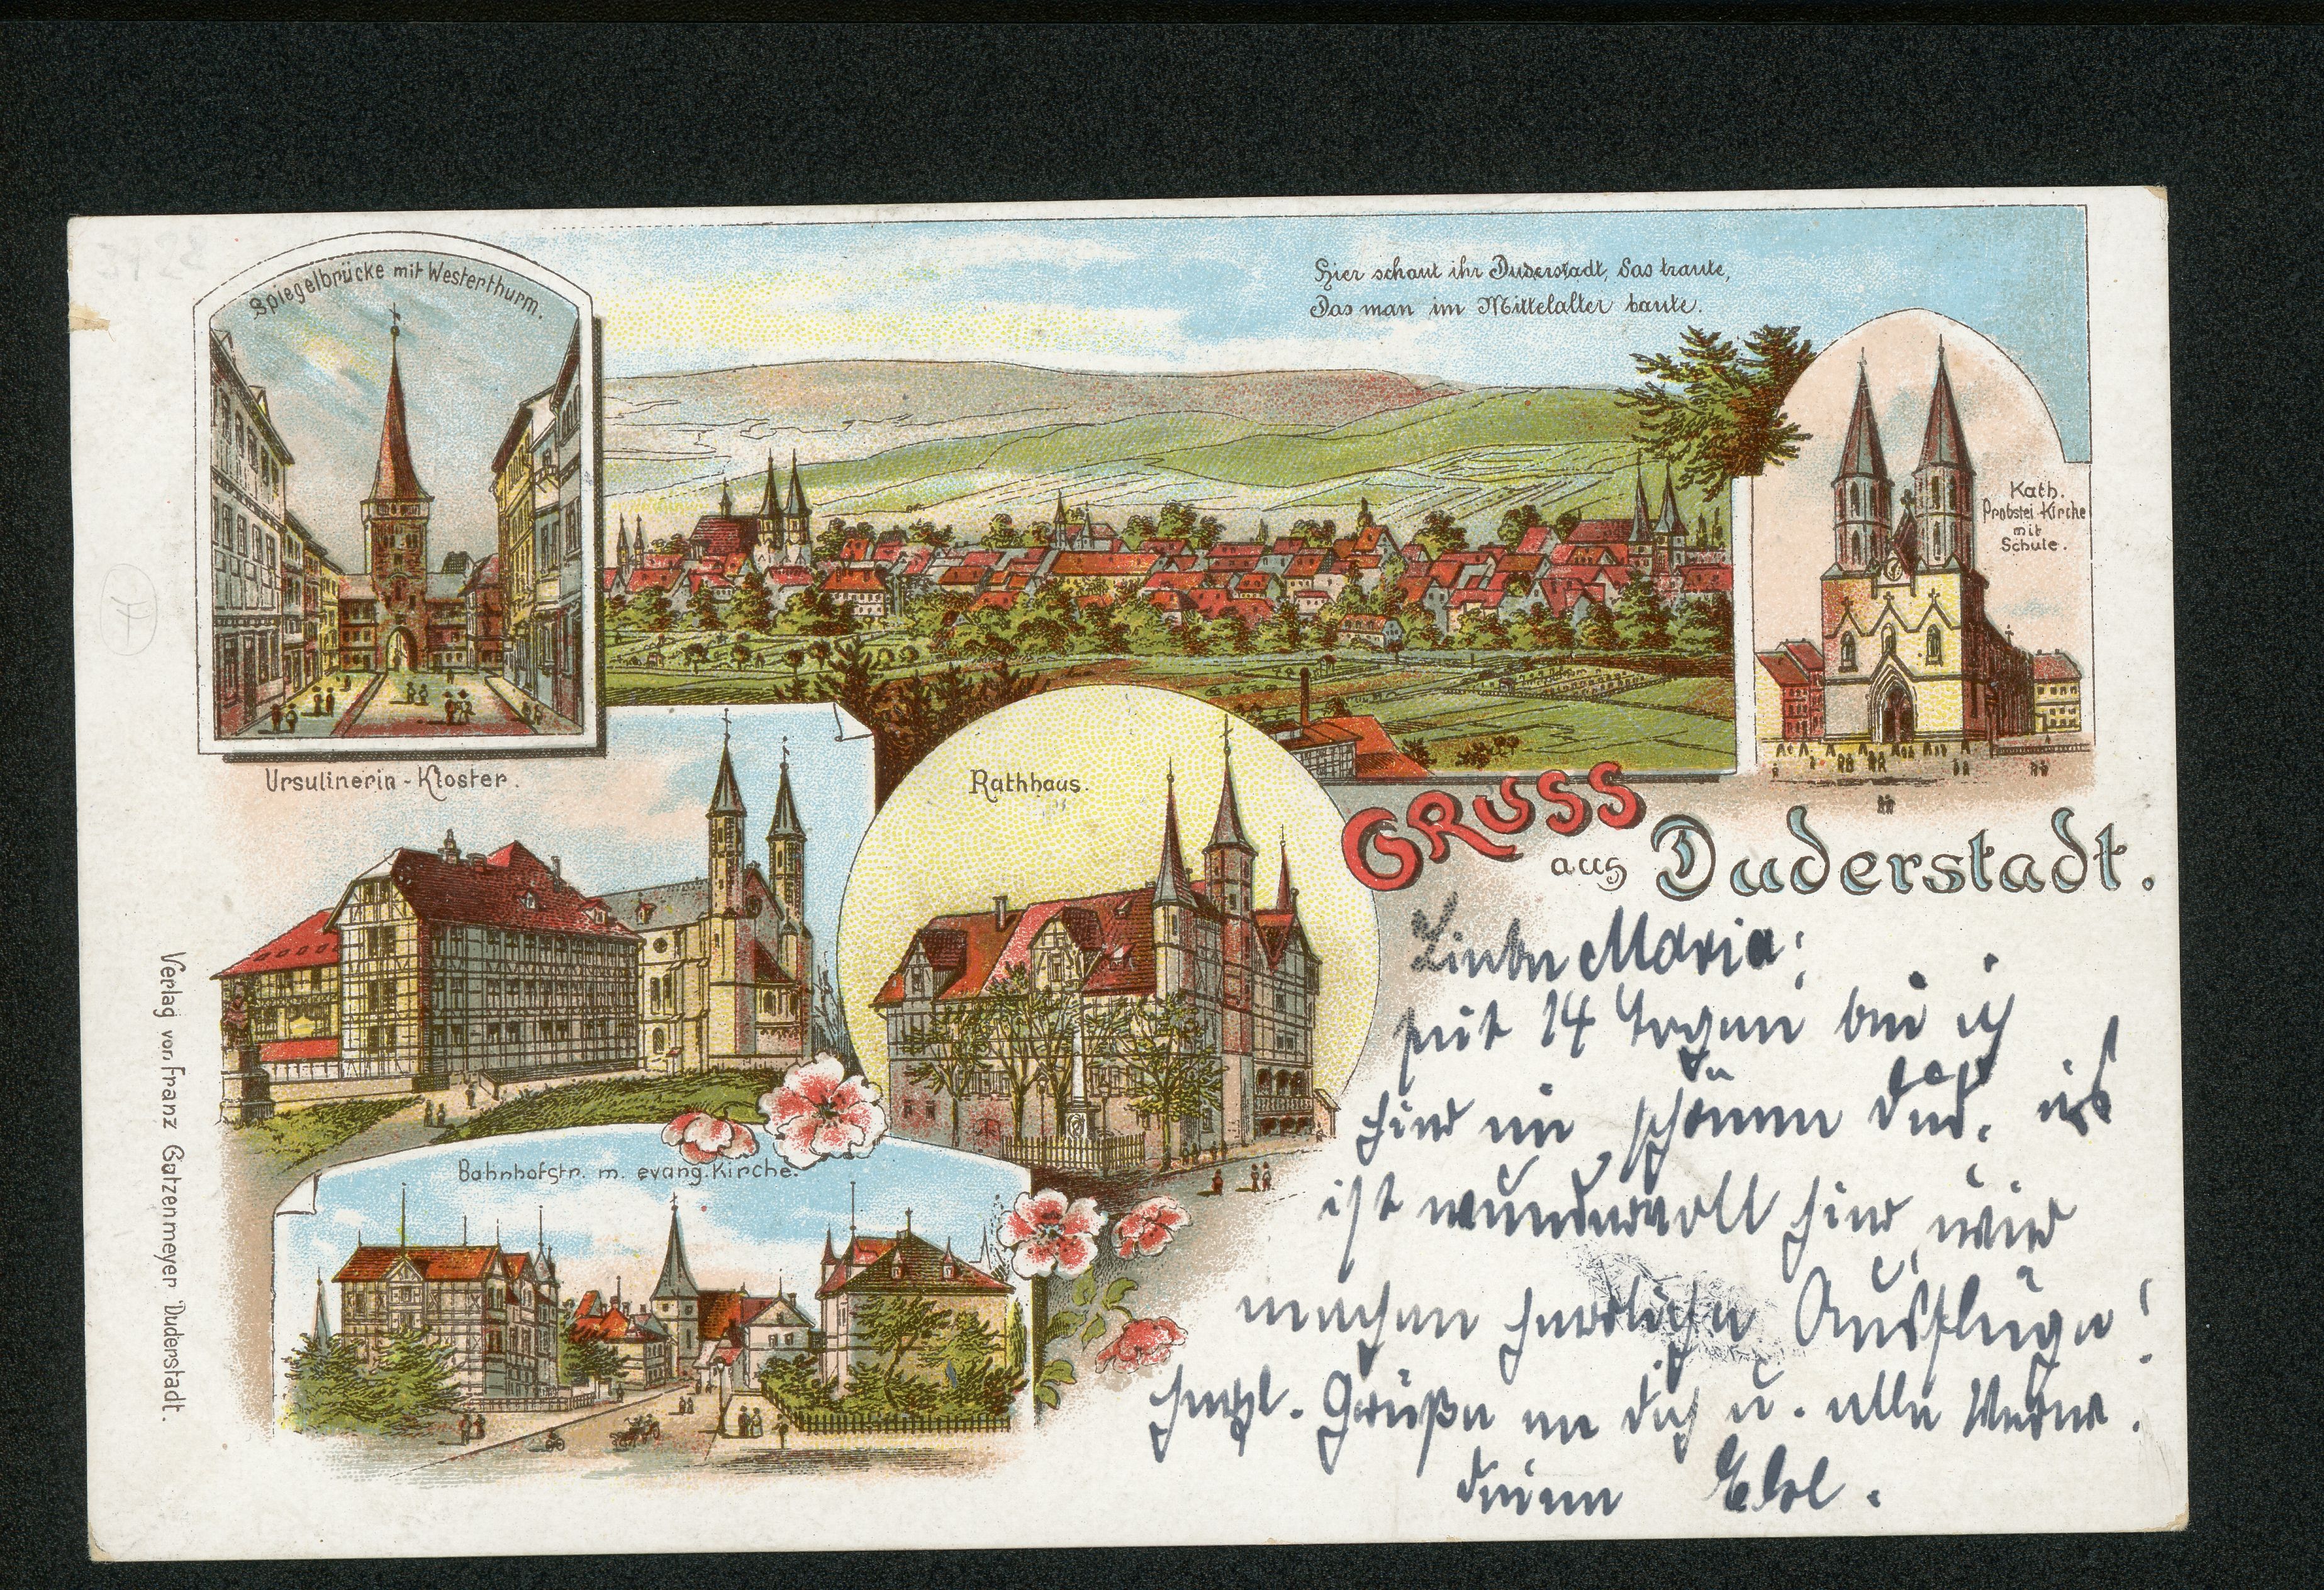 3928
Spiegelbrücke mit Westerthurm.
Hier schaut ihr Duderstadt, das traute,
Das man im Mittelalter baute.
Kath.
Probstei-Kirche
mit
Schule.
Ursulinerin-Kloster.
Rathhaus.
GRUSS
aus Duderstadt.
Bahnhofstr. m. evang. Kirche.
Verlag von Franz Gutzenmeyer Duderstadt.
Liebe Maria!
seit 14 Tagen bin ich
hier im schönen Dud. es
ist wundervoll hier, wir
machen herrliche Ausflüge!
herzl. Grüße an dich u. alle
deine